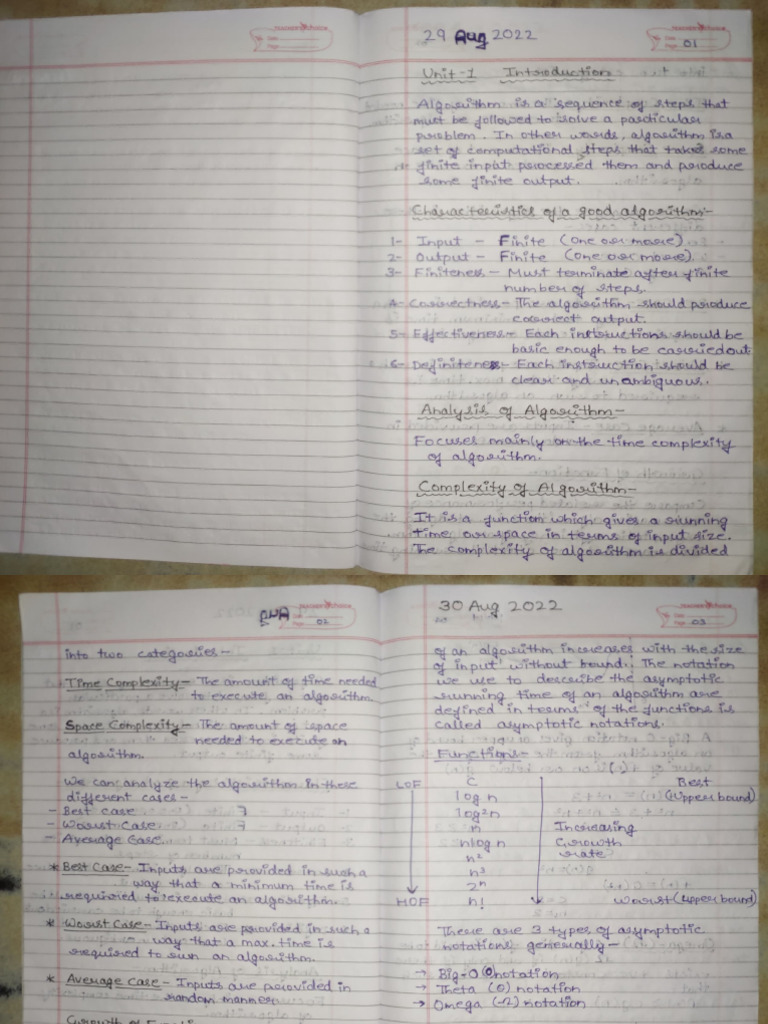 29 Aug 2022
01
Unit-1 Introduction
Algorithm is a sequence of steps that
must be followed to solve a particular
problem. In other words, algorithm is a
set of computational steps that takes some
finite input processed them and produce
some finite output.
Characteristics of a good algorithm-
1- Input - Finite (one or more).
2- Output - Finite (one or more).
3- Finiteness - Must terminate after finite
number of steps.
4- Correctness - The algorithm should produce
correct output.
5- Effectiveness - Each instructions should be
basic enough to be carried out.
6- Definiteness - Each instruction should be
clear and unambiguous.
Analysis of Algorithm-
Focuses mainly on the time complexity
of algorithm.
Complexity of Algorithm-
It is a function which gives a running
time or space in terms of input size.
The complexity of algorithm is divided
02
into two categories -
Time Complexity - The amount of time needed
to execute an algorithm.
Space Complexity - The amount of space
needed to execute an
algorithm.
We can analyze the algorithm in these
different cases -
- Best case
- Worst Case
- Average Case
* Best Case - Inputs are provided in such a
way that a minimum time is
required to execute an algorithm.
* Worst Case - Inputs are provided in such a
way that a max. time is
required to run an algorithm.
* Average Case - Inputs are provided in
random manner
30 Aug 2022
03
of an algorithm increases with the size
of input without bound. The notation
we use to describe the asymptotic
running time of an algorithm are
defined in terms of the functions is
called asymptotic notations.
Functions -
LOF C Best
log n (Upper bound)
log²n
n Increasing
nlog n Growth
n² rate
n³
2ⁿ
HOF n! Worst (Upper bound)
There are 3 types of asymptotic
notations generally -
→ Big-O (O) notation
→ Theta (θ) notation
→ Omega (Ω) notation